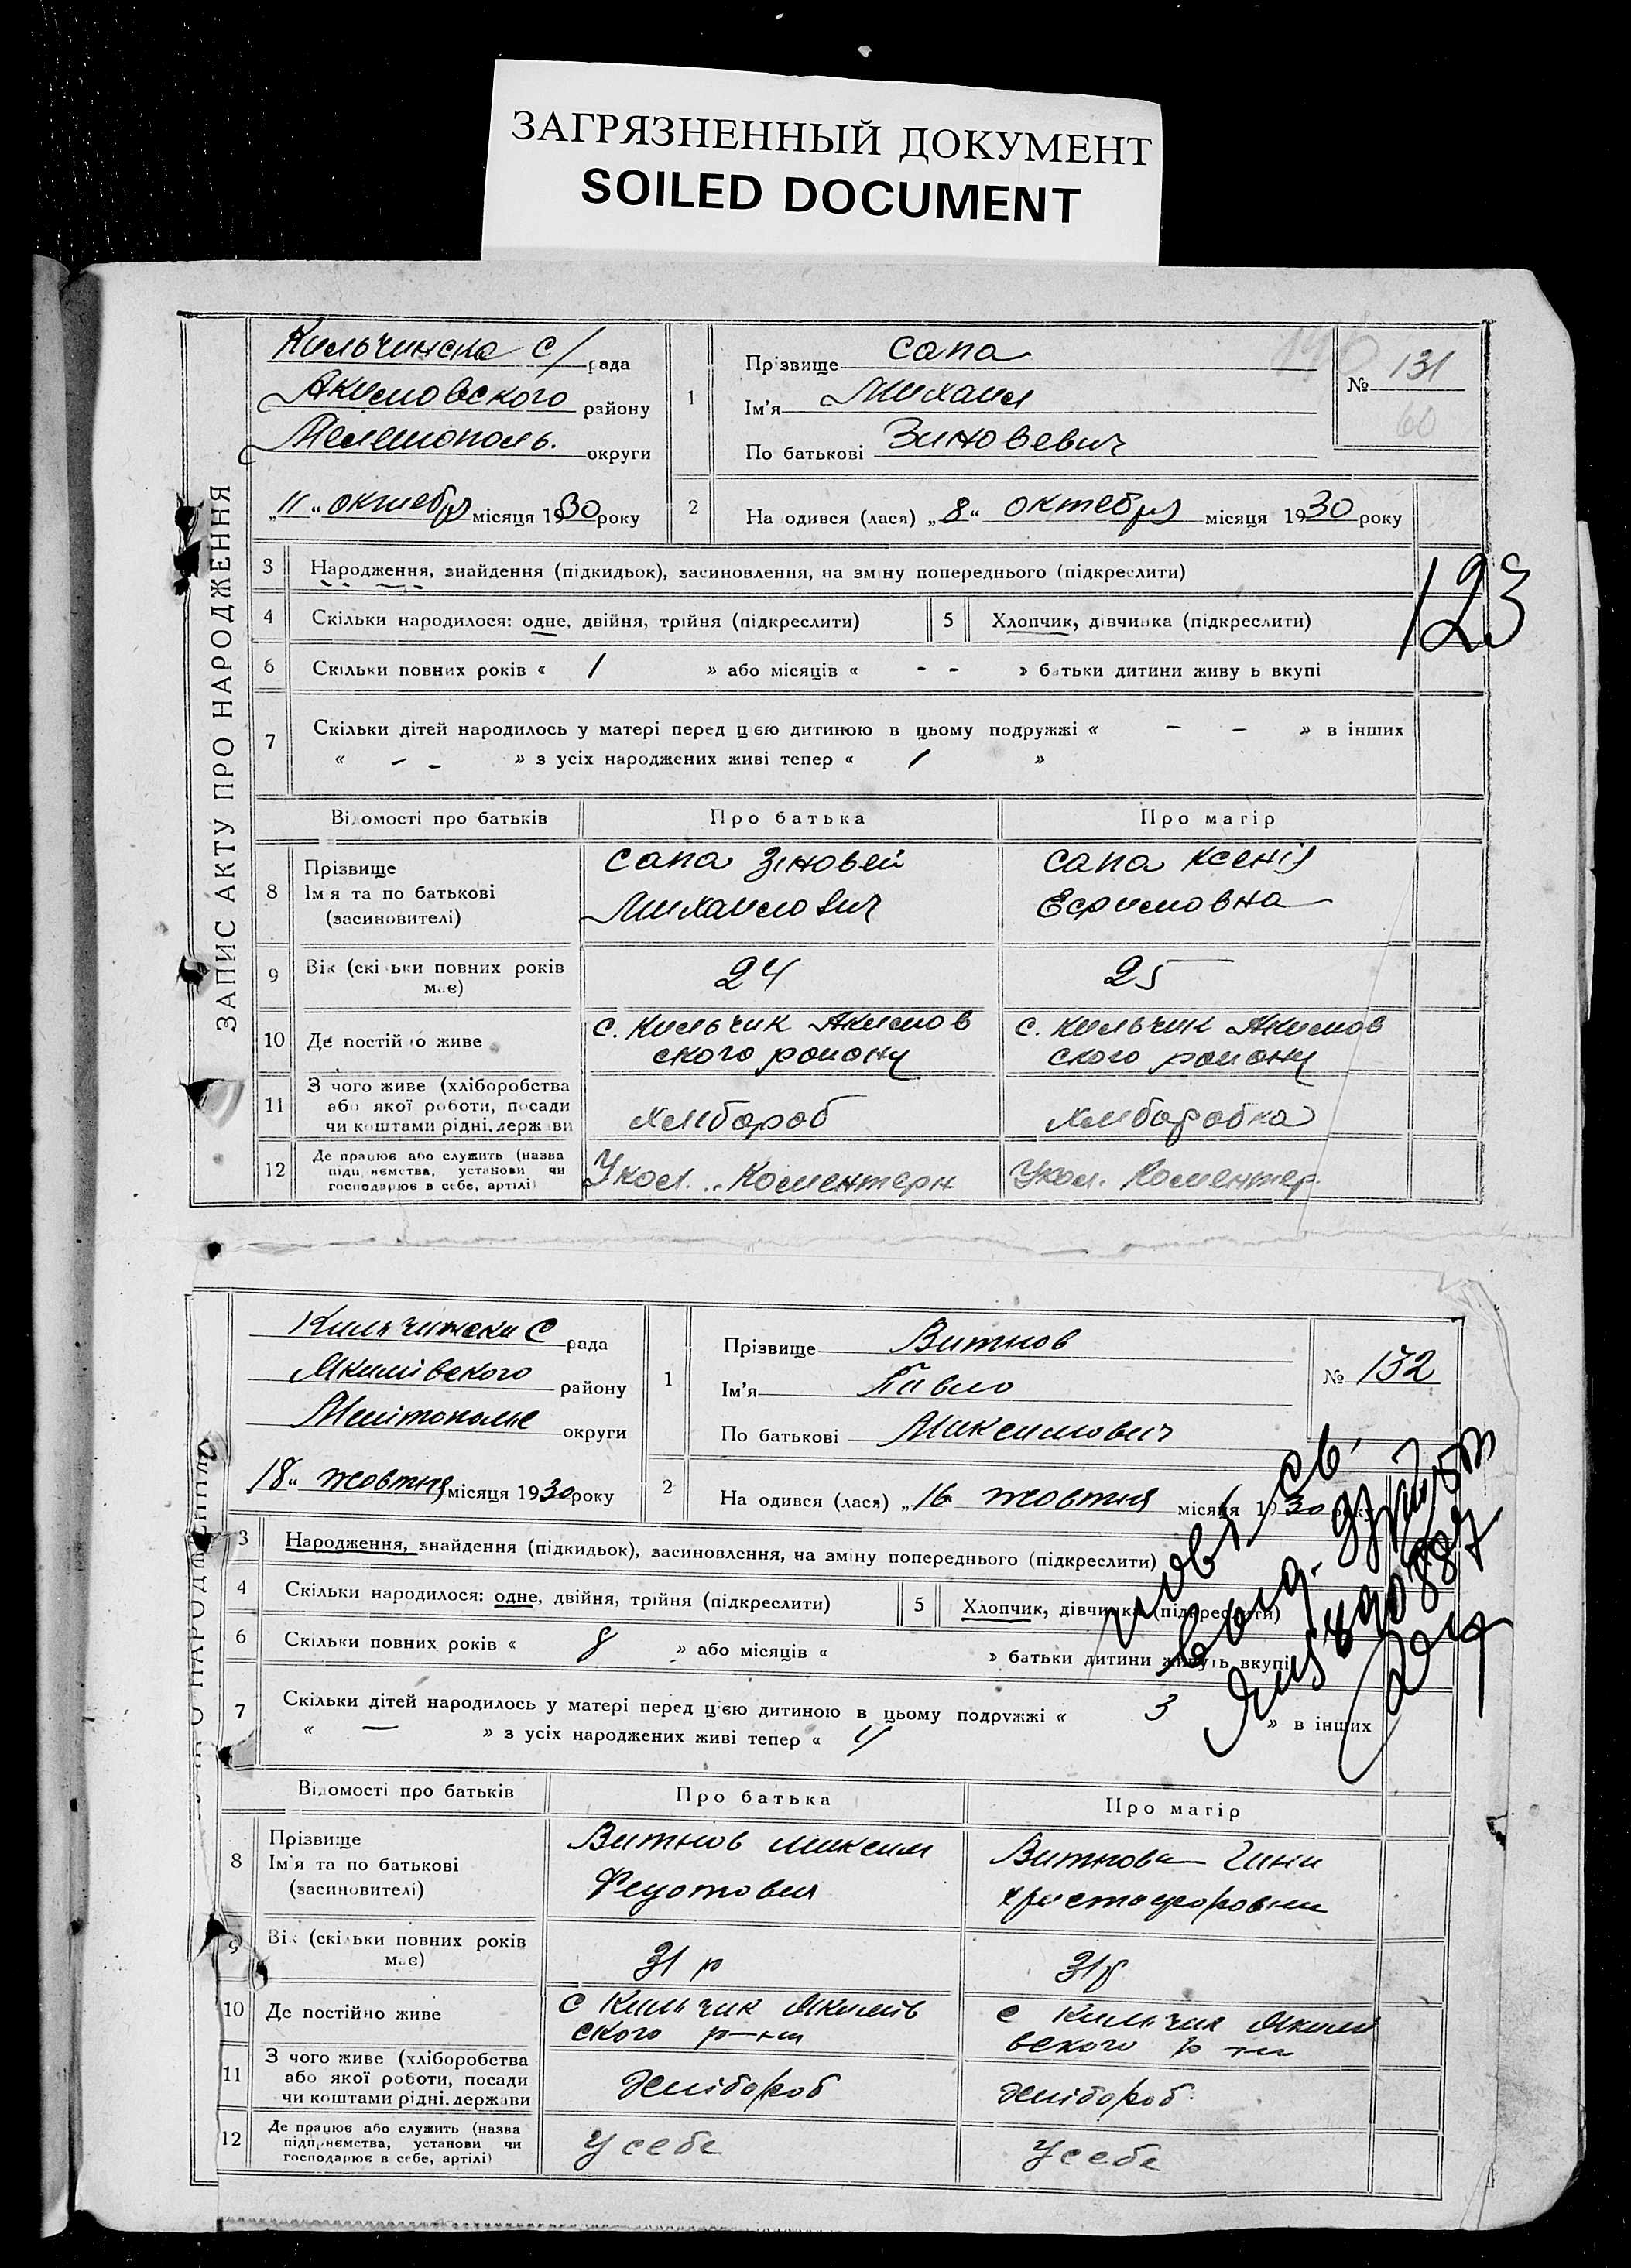 ЗАГРЯЗНЕННЫЙ ДОКУМЕНТ
SOILED DOCUMENT
ЗАПИС АКТУ ПРО НАРОДЖЕННЯ
Кильчинска с/ рада
Акимовского району
Мелетополь. округи
„11“ октебря місяця 1930 року
1
Прізвище Сапа
Ім'я Михаил
По батькові Зиновевич
№ 131
60
2
На одився (лася) „8“ октебря місяця 1930 року
123
3 Народження, знайдення (підкидьок), засиновлення, на зміну попереднього (підкреслити)
4 Скільки народилося: одне, двійня, трійня (підкреслити)
5 Хлопчик, дівчинка (підкреслити)
6 Скільки повних років « 1 » або місяців « - - » батьки дитини живу ь вкупі
7 Скільки дітей народилось у матері перед цією дитиною в цьому подружжі « - - » в інших
« - - » з усіх народжених живі тепер « 1 »
Відомості про батьків Про батька Про матір
8 Прізвище
Ім'я та по батькові
(засиновителі)
Сапа Зіновей
Михайлович
Сапа Ксенія
Ефимовна
9 Вік (скільки повних років має)
24
25
10 Де постійно живе
с. Кильчик Акимов
ского району
с. Кильчик Акимов
ского району
11 З чого живе (хліборобства
або якої роботи, посади
чи коштами рідні, держави
хлібороб
хліборобка
12 Де працює або служить (назва
підприємства, установи чи
господарює в себе, артілі)
Укол. Коментерн
Укол. Коментер.
О НАРОДЖЕННЯ
Кильчински С рада
Якимівского району
Мелітополе округи
18“ жовтня місяця 1930 року
1
Прізвище Витнов
Ім'я Павло
По батькові Максимович
№ 132
2
На одився (лася) „16 жовтня місяця 1930 року
3 Народження, знайдення (підкидьок), засиновлення, на зміну попереднього (підкреслити)
4 Скільки народилося: одне, двійня, трійня (підкреслити)
5 Хлопчик, дівчинка (підкреслити)
6 Скільки повних років « 8 » або місяців « » батьки дитини живуть вкупі
7 Скільки дітей народилось у матері перед цією дитиною в цьому подружжі « 3 » в інших
« — » з усіх народжених живі тепер « 4
Відомості про батьків Про батька Про матір
8 Прізвище
Ім'я та по батькові
(засиновителі)
Витнов Максим
Витнова
Христофоровна
9 Вік (скільки повних років має)
31 р
31 р
10 Де постійно живе
с Кильчик Якимів
ского р-на
с Кильчик Якимі
вского р-на
11 З чого живе (хліборобства
або якої роботи, посади
чи коштами рідні, держави
Хлібороб
Хлібороб
12 Де працює або служить (назва
підприємства, установи чи
господарює в себе, артілі)
У себе
У себе